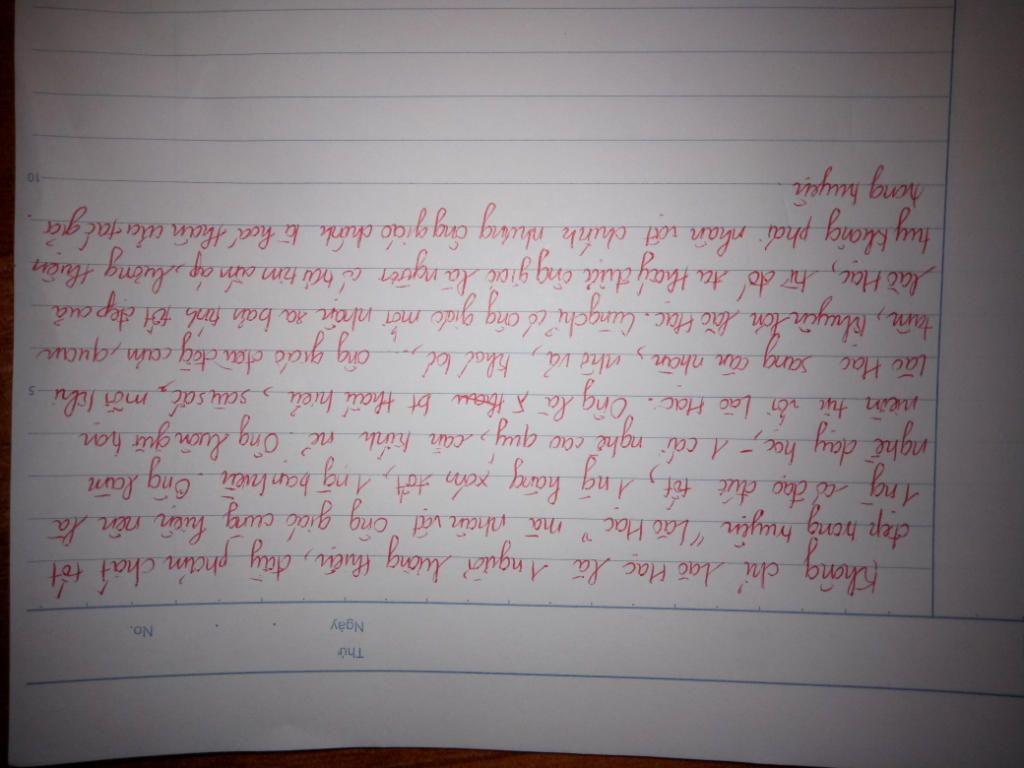 Thứ
Ngày No.
Không chỉ Lão Hạc là 1 người lương thiện, đầy phẩm chất tốt
đẹp trong truyện "Lão Hạc" mà nhân vật ông giáo cũng hiện nên là
1 ng có đạo đức tốt, 1 ng hàng xóm tốt, 1 ng bạn hiền. Ông làm
nghề dạy học, - 1 cái nghề cao quý, cần kính nể. Ông luôn giữ trọn
niềm tin với Lão Hạc. Ông là bt thấu hiểu, sâu sắc, mỗi khi
Lão Hạc sang căn nhằn, nhờ vả, khóc lóc,... ông giáo đều đồng cảm, quan
tâm, khuyên lơn lão Hạc. Cũng chỉ có ông giáo mới nhận ra bản tính tốt đẹp của
lão Hạc, từ đó ta thấy được ông giáo là người có trái tim ấm áp, lương thiện
tuy không phải nhân vật chính nhưng ông giáo chính là hoá thân của tác giả.
trong truyện.
5
10